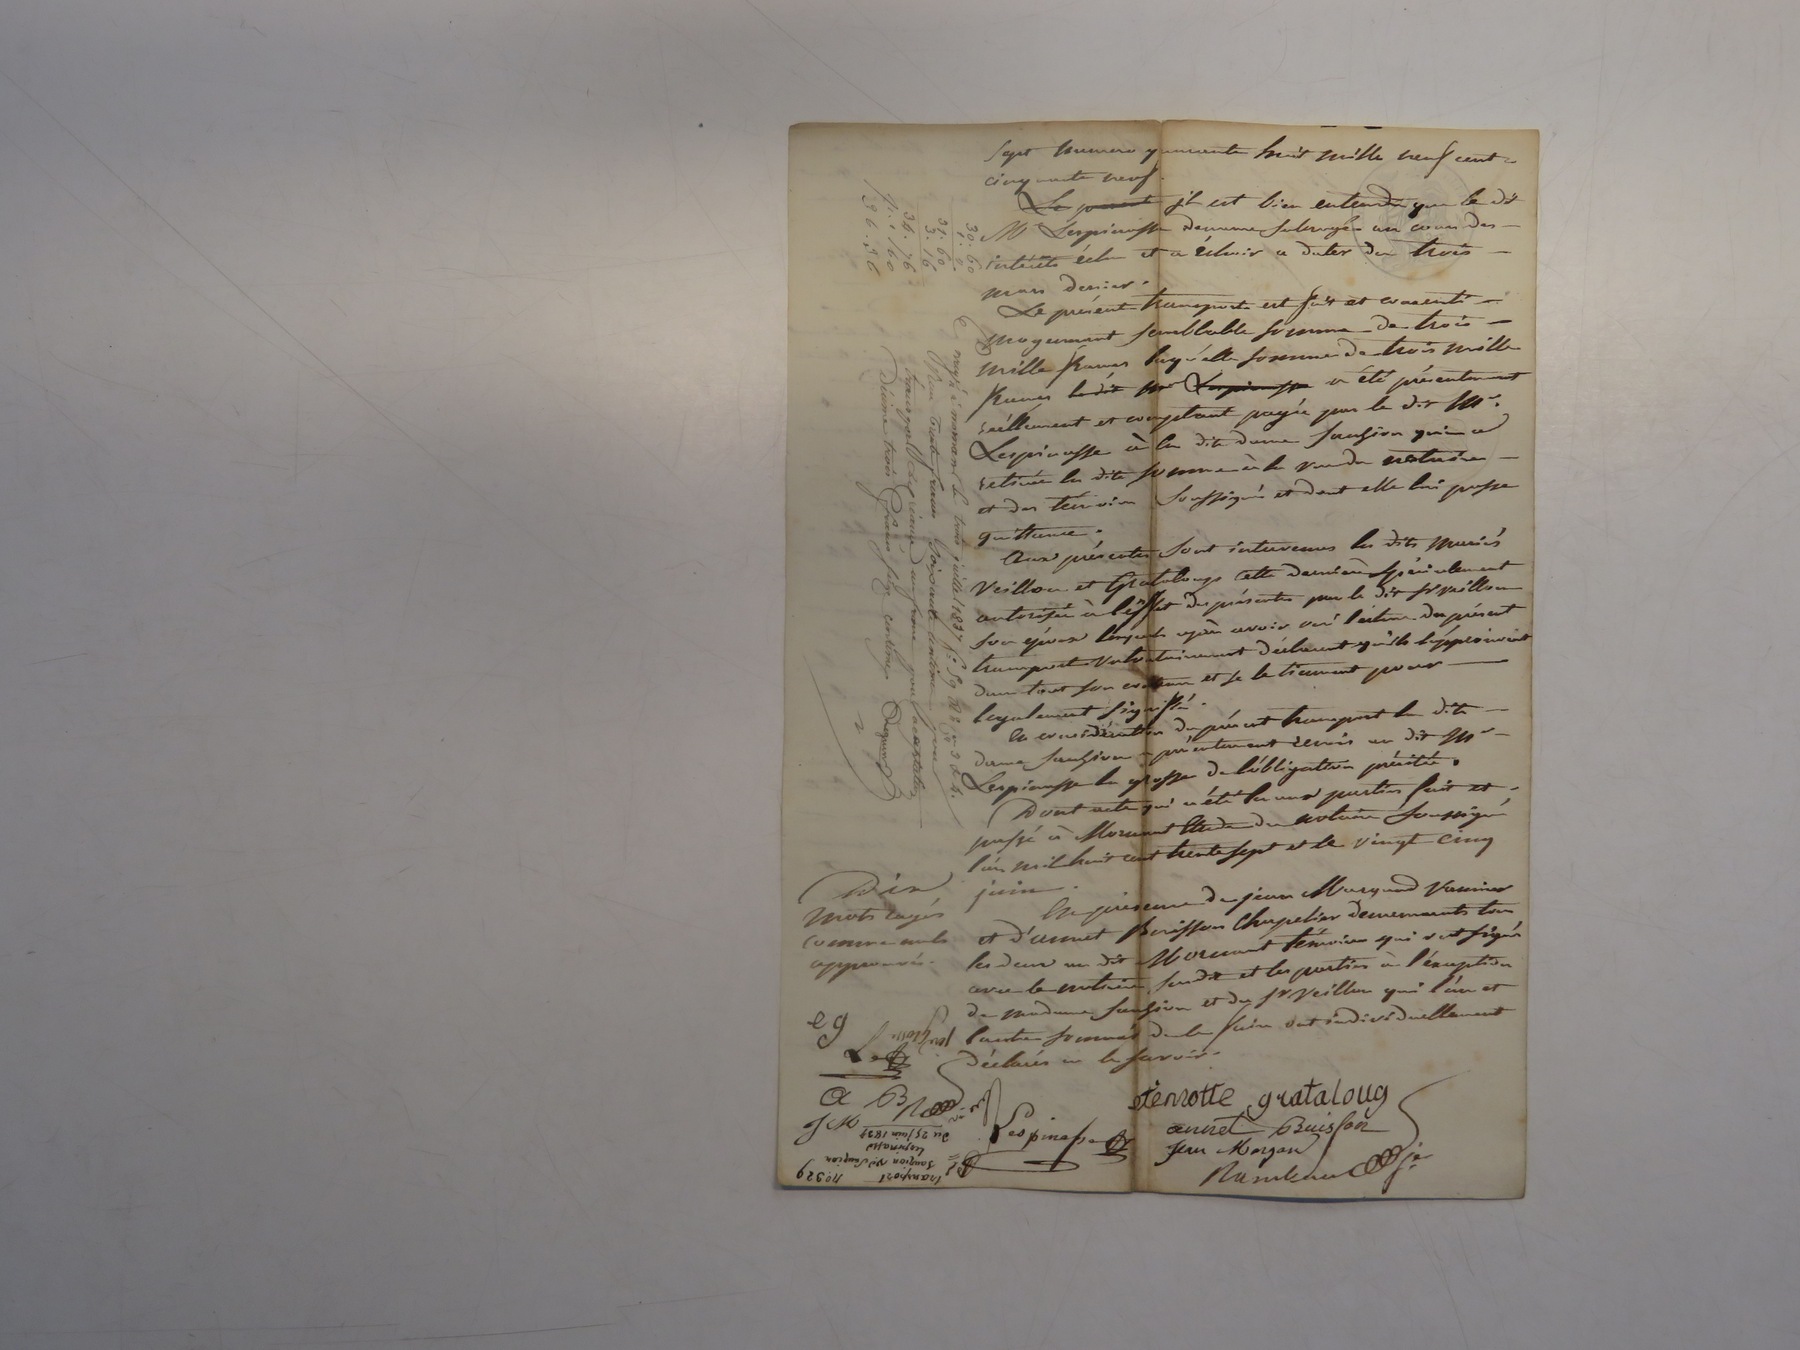 sept numero quarante huit mille neuf cent
cinquante neuf.
Le présent il est bien entendu que le dit
Mr Lespinasse demeure subrogé au cours des
intérêts échu et à échoir a dater du trois
mars dernier.
Le présent transport est fait et consenti
moyennant semblable somme de trois
mille francs laquelle somme de trois mille
francs le dit Mr Lespinasse a été présentement
réellement et comptant payée par le dit Mr.
Lespinasse à la dite dame Saugion qui a
retirée la dite somme à la vue du notaire
et des témoins soussignés et dont elle lui passe
quittance.
Aux présentes sont intervenus les dits mariés
Veillon et Grataloup cette dernière spécialement
autorisée à l'effet des présentes par le dit sr Veillon
son époux lesquels après avoir ouï lecture du présent
transport volontairement déclarent qu'ils l'approuvent
dans tout son contenu et se le tiennent pour
légalement signifié.
En considération du présent transport la dite
dame Saugion a présentement remis au dit Mr
Lespinasse la grosse de l'obligation précitée.
Dont acte qui a été lu aux parties fait et
passé à Mornant Etude du notaire soussigné
l'an mil huit cent trente sept et le vingt cinq
juin.
En présence de jean Margand
et d'annet Buisson Chapelier demeurants tous
les deux au dit Mornant témoins qui ont signé
avec le notaire susdit et les parties à l'exception
de madame Saugion et du sr Veillon qui l'un et
l'autre sommés de le faire ont individuellement
déclarés ne le savoir.
étennotte grataloup
Lespinasse
annet Buisson
Jean Morgan
Dix
mots rayés
comme nuls
approuvés.
e g
A B
J M
30. 60
31. 60
3. 16
34. 76
1. 60
36. 36
Enregistré à mornant le trois juillet 1837
Reçu trente francs soixante centimes pour
transport
Décime trois francs seize centimes
No. 329
transport
Saugion
Lespinasse
du 25 juin 1837